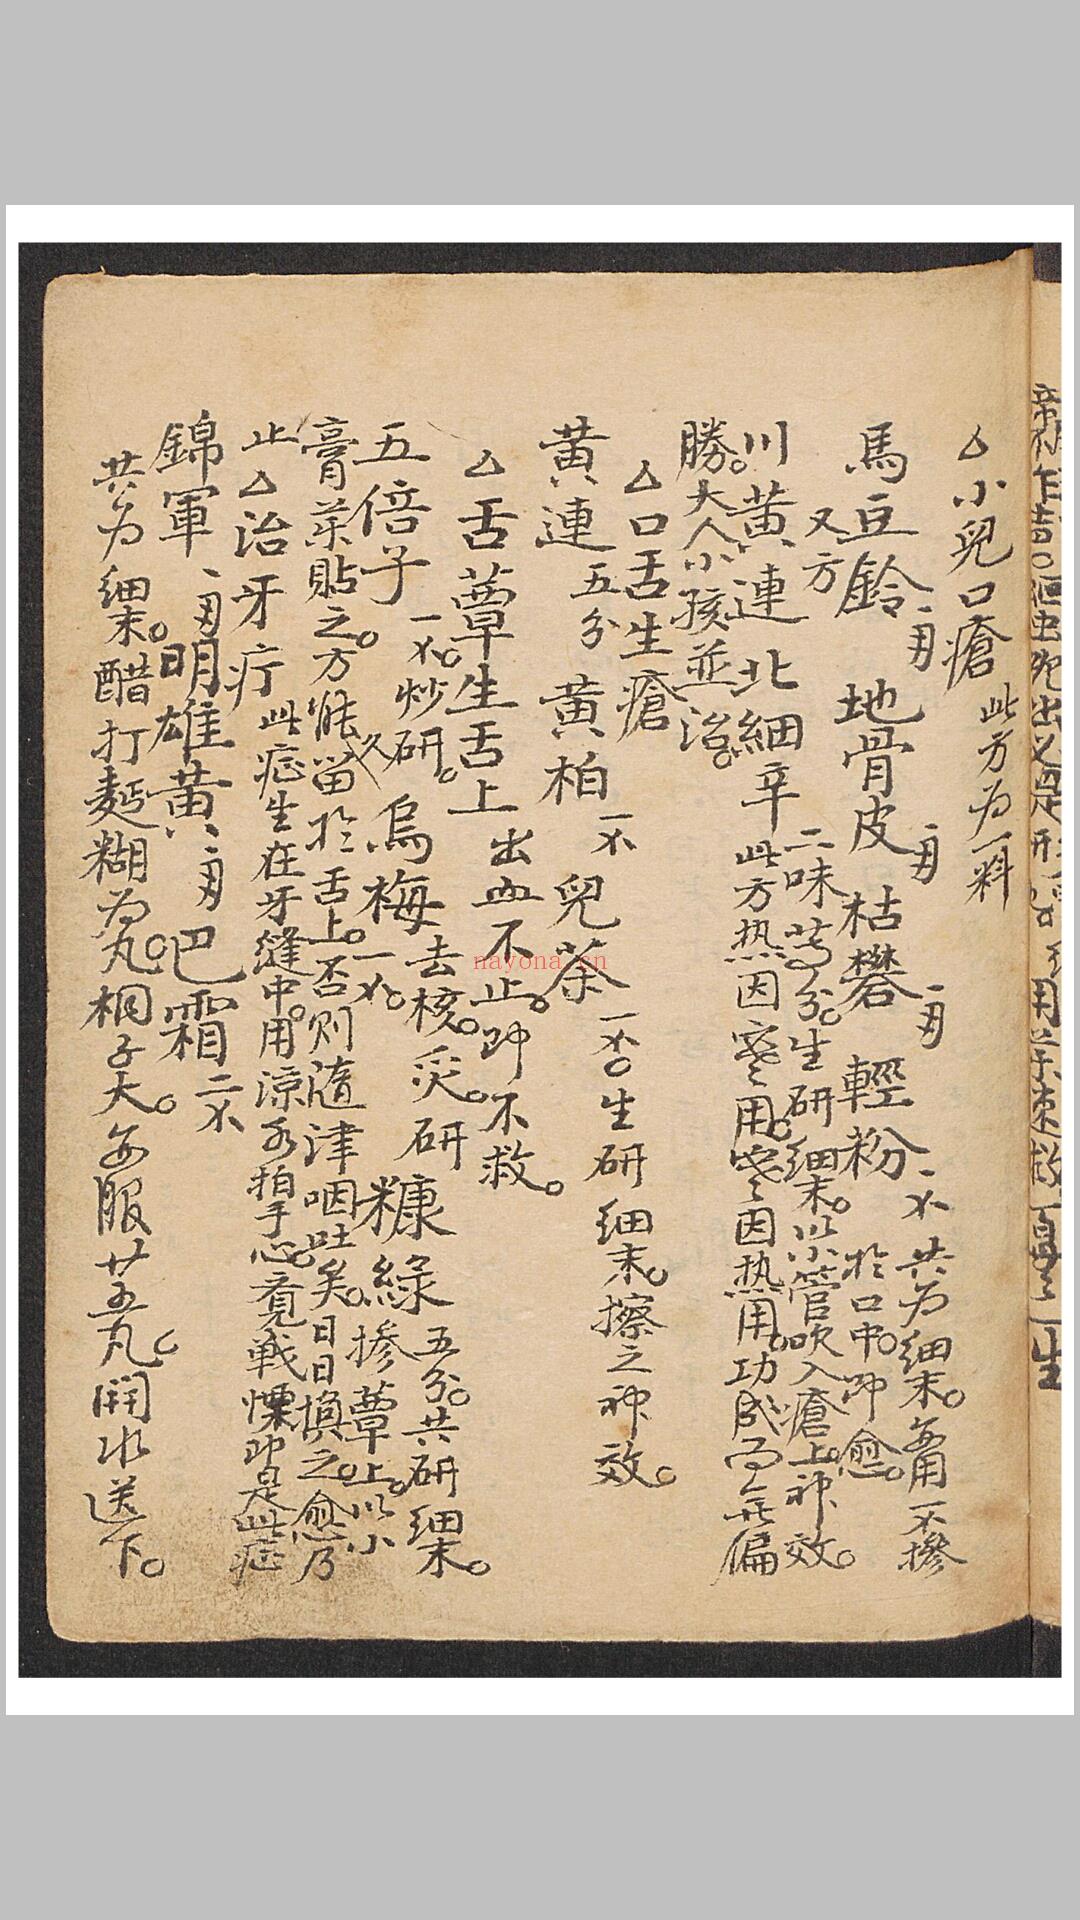 △小兒口瘡 此方为一料
馬豆鈴 地骨皮 枯礬 輕粉 共为細末。每用 摻於口中。即愈。
又方
川黄連 北細辛 二味等分。生研細末。以小管吹入瘡上。神效。此方热因寒用。寒因热用。功成而無偏
勝。大人小孩並治。
△口舌生瘡
黄連五分 黄柏 兒茶 生研細末。擦之神效。
△舌蕈生舌上 出血不止。即不救。
五倍子 炒研。烏梅 去核。炙。研 糠綠 五分。共研細末。摻蕈上。以小
膏药貼之。方能久留於舌上。否则隨津咽吐矣。日日換之。愈乃
止
△治牙疔 此症生在牙縫中。用涼水拍手心。竟戰慄即是此症
錦軍 明雄黄 巴霜
共为細末。醋打麪糊为丸。桐子大。每服廿五丸。開水送下。
nayona.cn